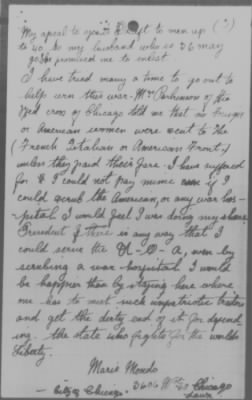 My apeal to you to Draft to men up (2)
to 40. so my husband who is 36 may
go. He promised me to enlist
I have tried many a time to go out to
help win this war. Mr Parkinson of the
Red cross of Chicago told me that no troops
or American women were sent to the
(French Italian or American Front.)
unless they paid their fare. I have suffered
for it I could not pay mine if I
could scrub the American, or any war hos-
-pital I would feel I was doing my share
President if there is any way that I
could serve the U-S-A, even by
scrubing a war-hospital I would
be happier than by staying here where
me has to meet such unpatriotic traitors
and get the dirty end of it for defend
ing the state who fights for the worlds
Liberty.
Marie Mondo
3606 W Chicago
- City of Chicago -